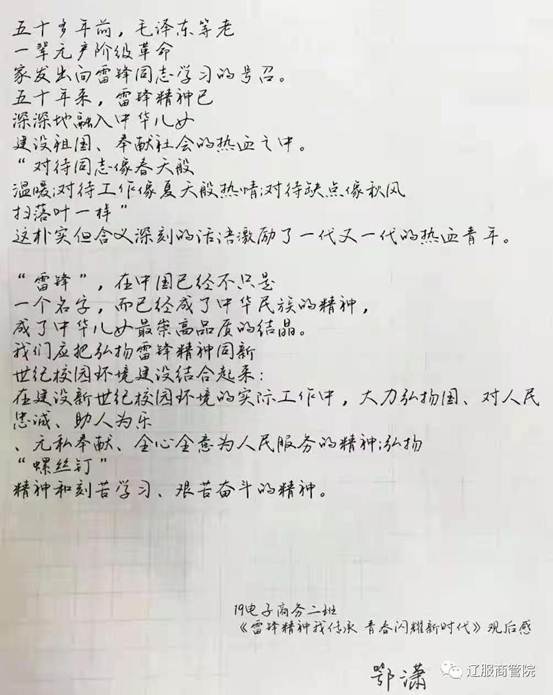 五十多年前，毛泽东等老
一辈无产阶级革命
家发出向雷锋同志学习的号召。
五十年来，雷锋精神已
深深地融入中华儿女
建设祖国、奉献社会的热血之中。
“对待同志像春天般
温暖;对待工作像夏天般热情;对待缺点像秋风
扫落叶一样”
这朴实但含义深刻的话语激励了一代又一代的热血青年。
“雷锋”，在中国已经不只是
一个名字，而已经成了中华民族的精神，
成了中华儿女最崇高品质的结晶。
我们应把弘扬雷锋精神同新
世纪校园环境建设结合起来：
在建设新世纪校园环境的实际工作中，大力弘扬国、对人民
忠诚、助人为乐
、无私奉献、全心全意为人民服务的精神;弘扬
“螺丝钉”
精神和刻苦学习、艰苦奋斗的精神。
19电子商务二班
《雷锋精神我传承 青春闪耀新时代》观后感
鄂潇
辽服商管院